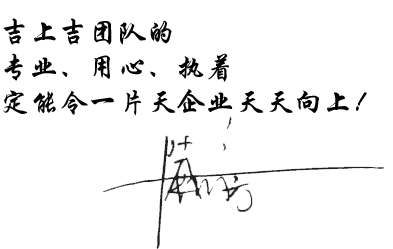 吉上吉团队的
专业、用心、执着
定能令一片天企业天天向上!